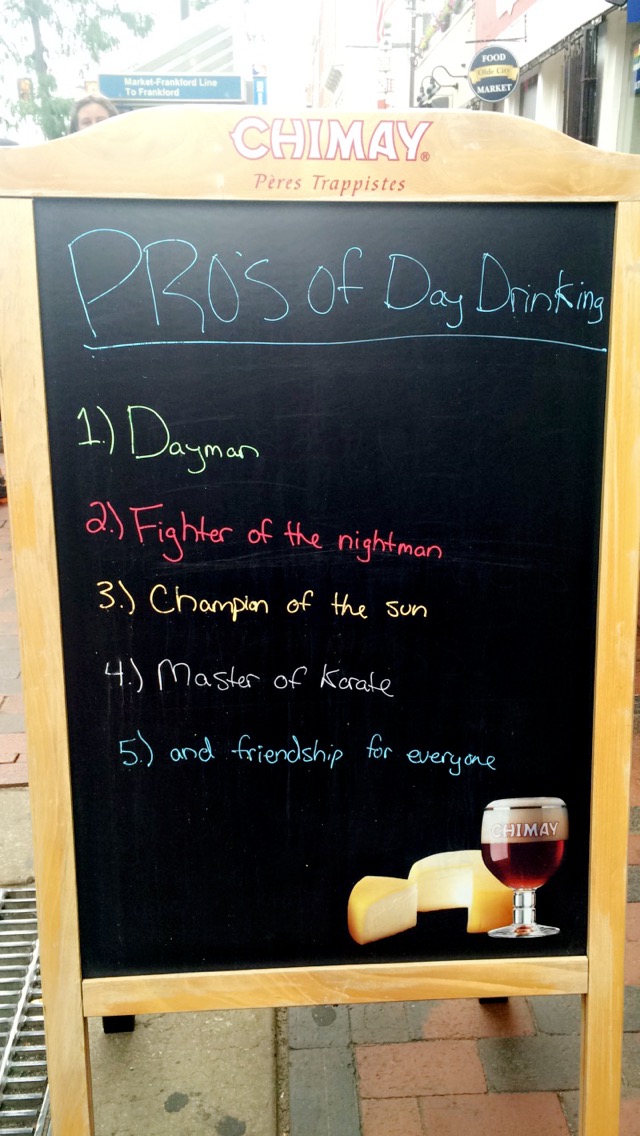 Market-Frankford Line
To Frankford
FOOD
Olde City
MARKET
CHIMAY®
Pères Trappistes
PRO'S of Day Drinking
1.) Dayman
2.) Fighter of the nightman
3.) Champion of the sun
4.) Master of Karate
5.) and friendship for everyone
CHIMAY